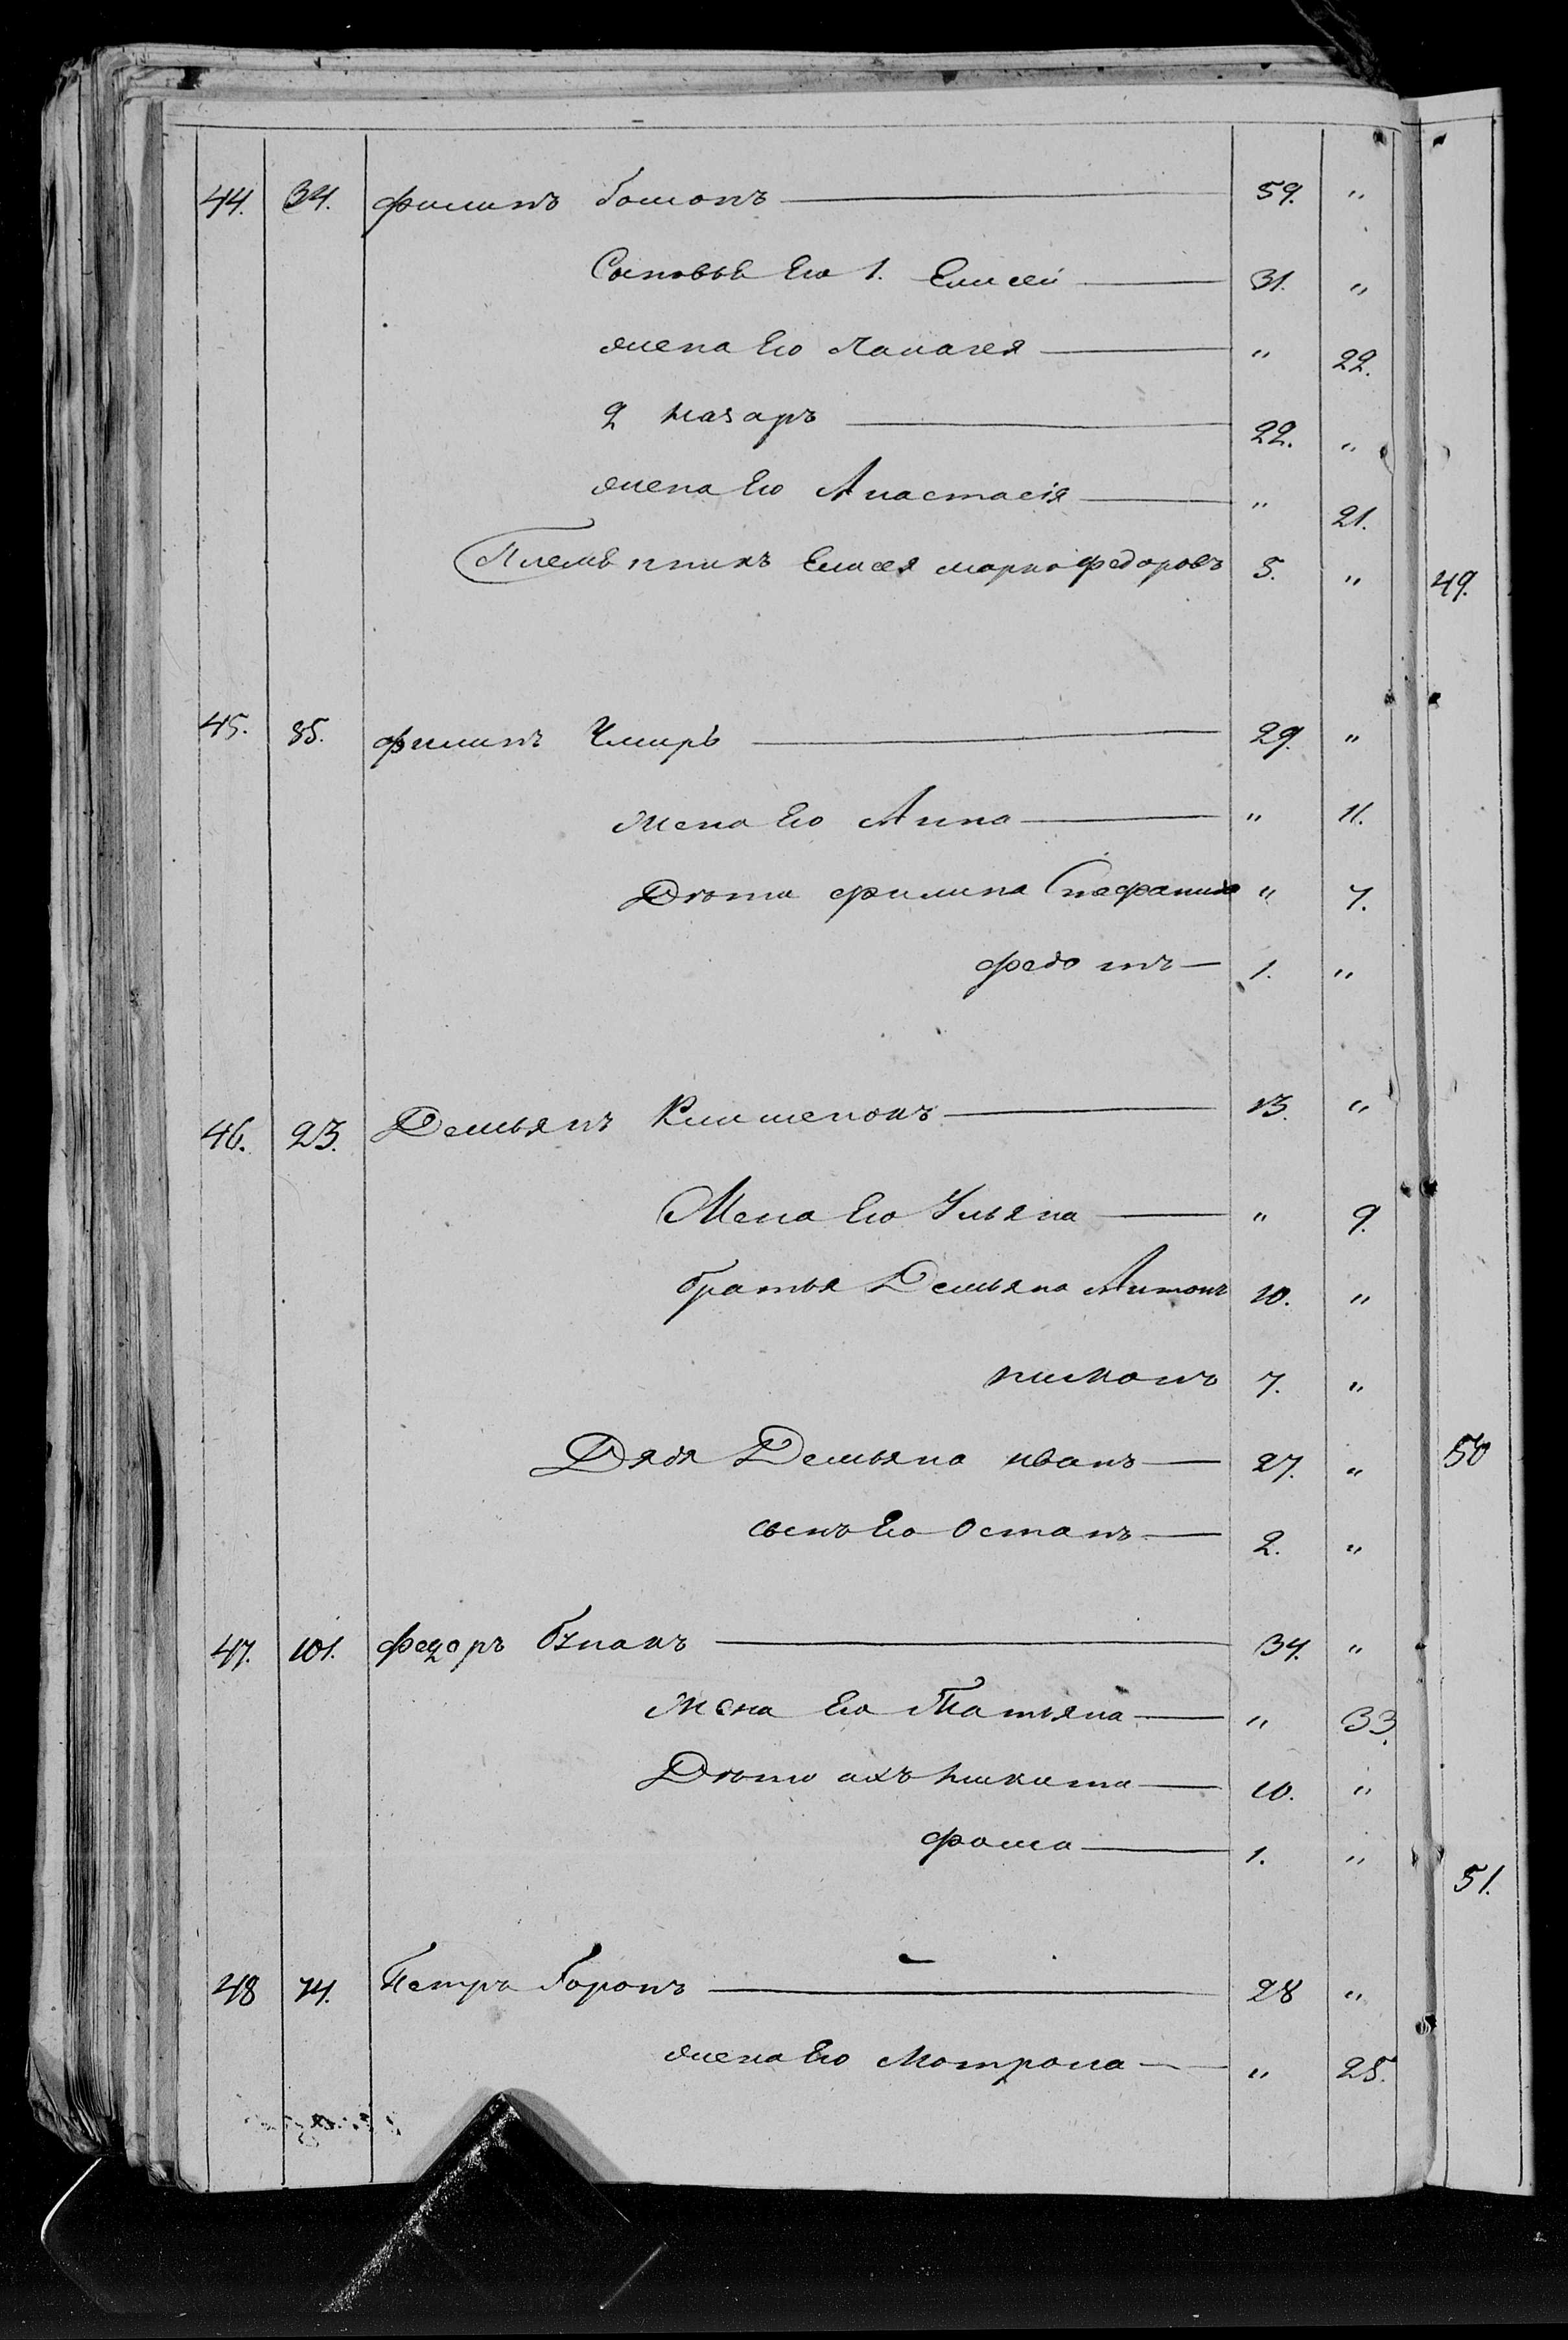 44. 34. Филипъ Гомонъ 59. "
Сыновьѣ Его 1. Елисей 31. "
жена Его Палагея " 22.
2 Назаръ 22. "
жена Его Анастасія " 21.
Племѣнникъ Елисея Марко Федоровъ 5. "
49.
45. 85. Филипъ Чмиръ 29. "
жена Его Анна " 11.
Дѣти Филипа Стефанида " 7.
Федотъ 1. "
46. 23. Демьянъ Клименокъ 13. "
Жена Его Ульяна " 9.
братья Демьяна Антонъ 10. "
Никонъ 7. "
Дядя Демьяна Иванъ 27. "
50
сынъ Его Остапъ 2. "
47. 101. Федоръ 34. "
жена Его Татьяна " 33.
Дѣти ихъ Никита 10. "
Фома 1. "
51.
48 74. Петръ 28 "
жена Его Мотрона " 25.